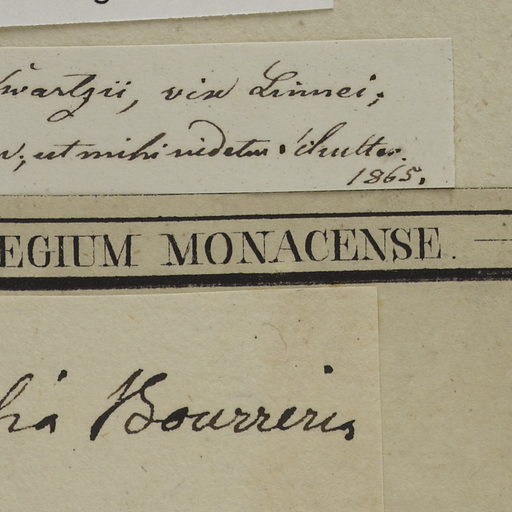 wartzii, vix Linnei;
, ut mihi videtur.
1865.
EGIUM MONACENSE.
Bourreria